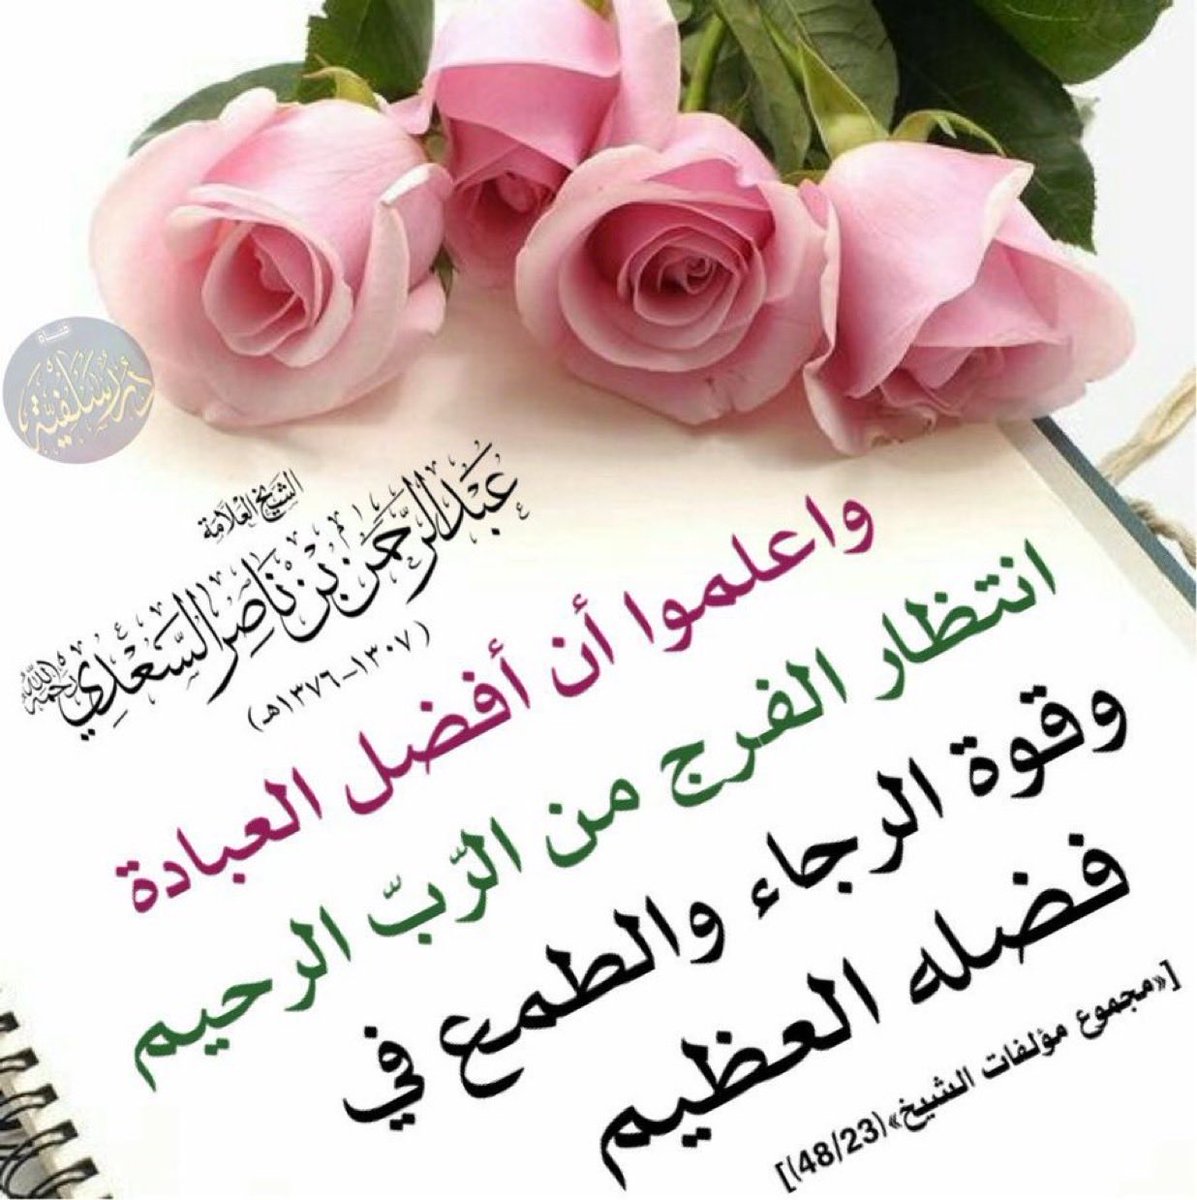 قناة
درر سلفية
الشيخ العلامة
عبد الرحمن بن ناصر السعدي رحمه الله
(١٣٠٧-١٣٧٦هـ)
واعلموا أن أفضل العبادة
انتظار الفرج من الرّبّ الرحيم
وقوة الرجاء والطمع في
فضله العظيم
[«مجموع مؤلفات الشيخ»(48/23)]